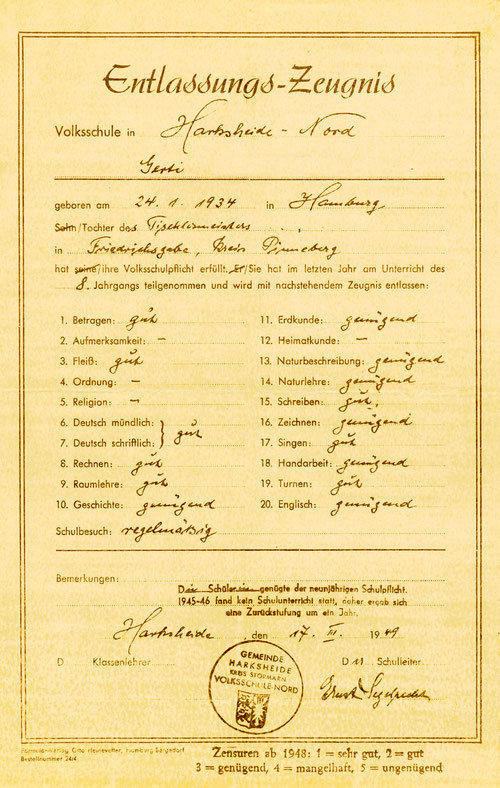 Entlassungs-Zeugnis
Volksschule in Harksheide - Nord
Gerti
geboren am 24. 1. 1934 in Hamburg
Sohn/Tochter des Tischlermeisters
in Friedrichsgabe, Kreis Pinneberg
hat seine/ihre Volksschulpflicht erfüllt. Er/Sie hat im letzten Jahr am Unterricht des
8. Jahrgangs teilgenommen und wird mit nachstehendem Zeugnis entlassen:
1. Betragen: gut
2. Aufmerksamkeit: –
3. Fleiß: gut
4. Ordnung: –
5. Religion: –
6. Deutsch mündlich: } gut
7. Deutsch schriftlich:
8. Rechnen: gut
9. Raumlehre: gut
10. Geschichte: genügend
11. Erdkunde: genügend
12. Heimatkunde: –
13. Naturbeschreibung: genügend
14. Naturlehre: genügend
15. Schreiben: gut.
16. Zeichnen: genügend
17. Singen: gut
18. Handarbeit: genügend
19. Turnen: gut
20. Englisch: genügend
Schulbesuch: regelmäßig
Bemerkungen:
Schüler genügte der neunjährigen Schulpflicht.
1945-46 fand kein Schulunterricht statt, daher ergab sich
eine Zurückstufung um ein Jahr.
Harksheide, den 17. III. 1949
D Klassenlehrer
GEMEINDE
HARKSHEIDE
KREIS STORMARN
VOLKSSCHULE-NORD
D er Schulleiter:
Ernst
Formularverlag Otto Heinevetter, Hamburg
Bestellnummer 244
Zensuren ab 1948: 1 = sehr gut, 2 = gut
3 = genügend, 4 = mangelhaft, 5 = ungenügend